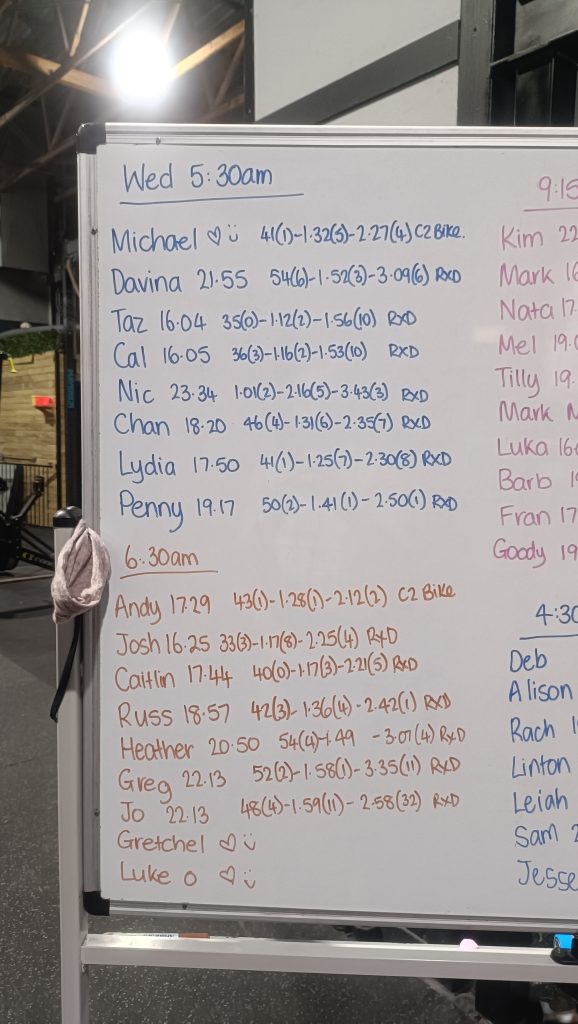 Wed 5:30am
Michael ♡ Ü 41(1)-1.32(3)-2.27(4) C2 Bike.
Davina 21.55 54(6)-1.52(3)-3.09(6) RxD
Taz 16.04 35(0)-1.12(2)-1.56(10) RxD
Cal 16.05 36(3)-1.16(2)-1.53(10) RxD
Nic 23.34 1.01(2)-2.16(5)-3.43(3) RxD
Chan 18.20 46(4)-1.31(6)-2.35(7) RxD
Lydia 17.50 41(1)-1.25(7)-2.30(8) RxD
Penny 19.17 50(2)-1.41(1)-2.50(1) RxD
6:30am
Andy 17.29 43(1)-1.28(1)-2.12(2) C2 Bike
Josh 16.25 33(3)-1.17(8)-2.25(4) RxD
Caitlin 17.44 40(0)-1.17(3)-2.21(5) RxD
Russ 18.57 42(3)-1.36(4)-2.42(1) RxD
Heather 20.50 54(4)-1.49 -3.07(4) RxD
Greg 22.13 52(2)-1.58(1)-3.35(11) RxD
Jo 22.13 48(4)-1.59(11)-2.58(32) RxD
Gretchel ♡ Ü
Luke O ♡ Ü
9:15
Kim 22
Mark 16
Nata 17.
Mel 19.0
Tilly 19.
Mark M
Luka 16
Barb 1
Fran 17
Goody 19
4:30
Deb
Alison
Rach 1
Linton
Leiah
Sam 2
Jesse